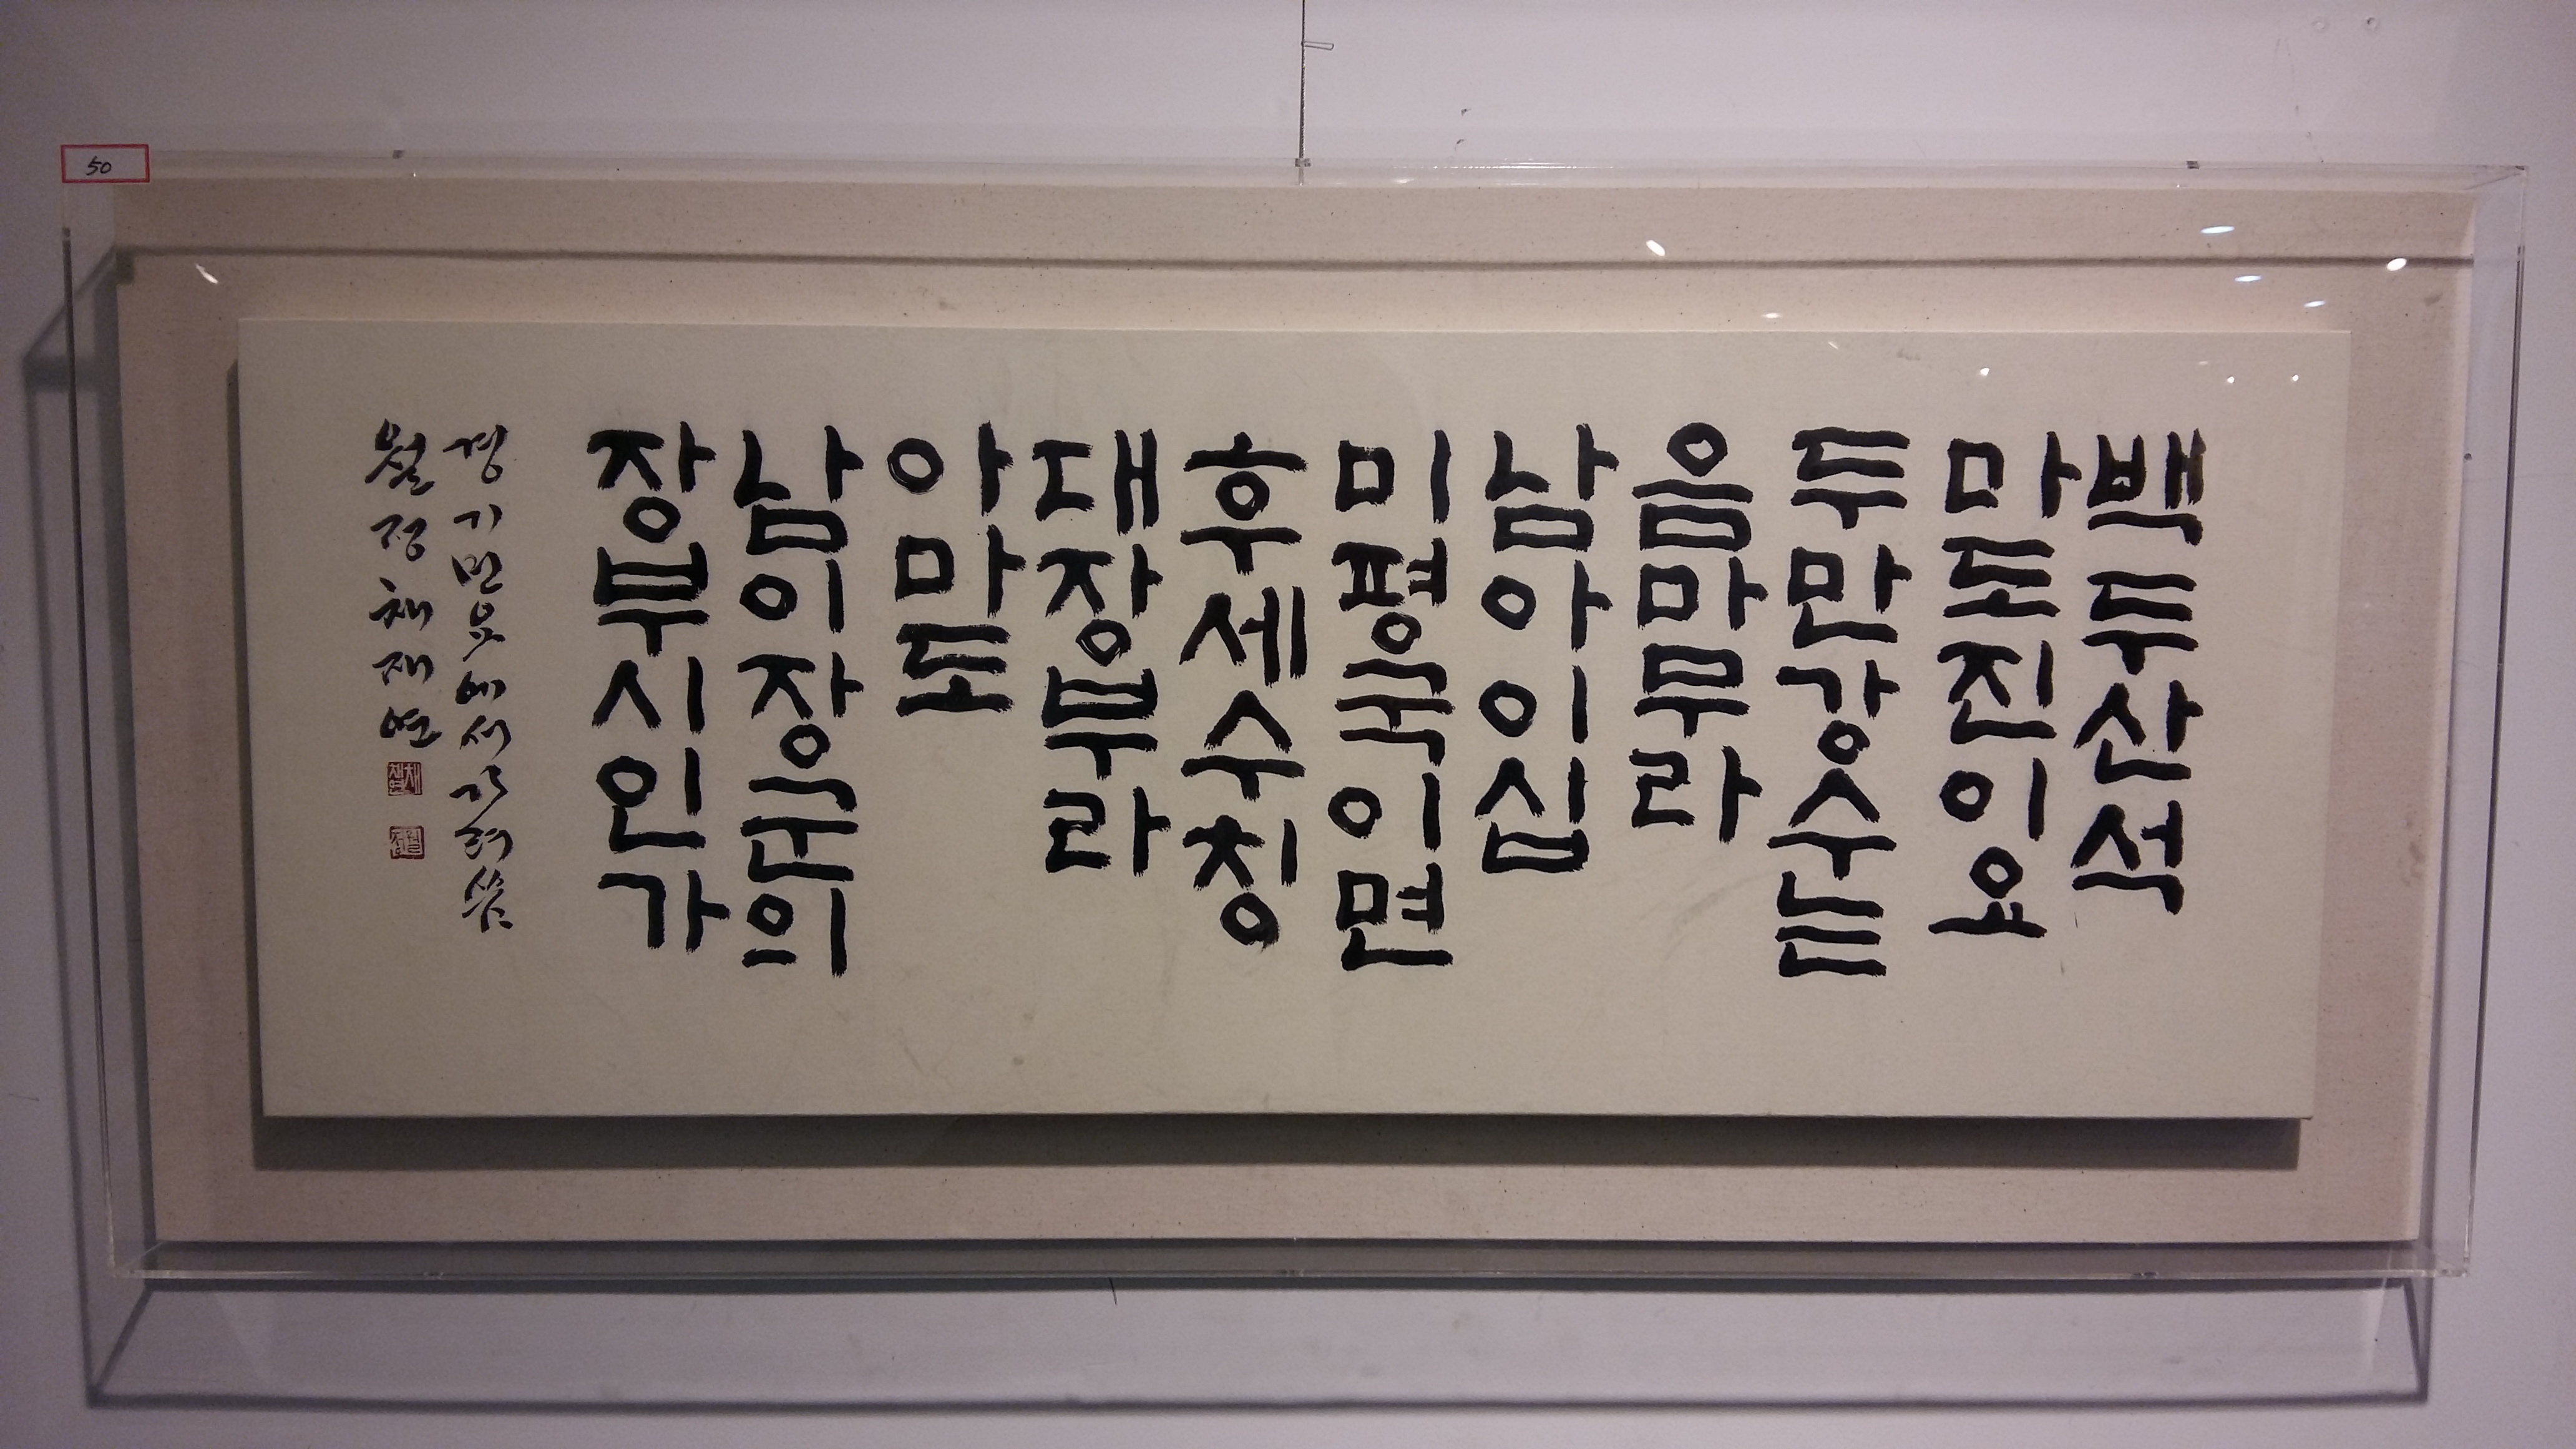 50
백두산석
마도진이요
두만강수는
음마무라
남아이십
미평국이면
후세수칭
대장부라
아마도
남이장군의
장부시인가
경기민요에서 가려씀
월정 채재연